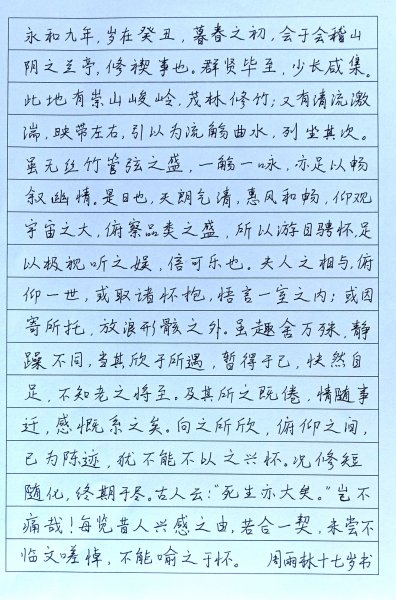 永和九年，岁在癸丑，暮春之初，会于会稽山
阴之兰亭，修禊事也。群贤毕至，少长咸集。
此地有崇山峻岭，茂林修竹；又有清流激
湍，映带左右，引以为流觞曲水，列坐其次。
虽无丝竹管弦之盛，一觞一咏，亦足以畅
叙幽情。是日也，天朗气清，惠风和畅，仰观
宇宙之大，俯察品类之盛，所以游目骋怀，足
以极视听之娱，信可乐也。夫人之相与，俯
仰一世，或取诸怀抱，悟言一室之内；或因
寄所托，放浪形骸之外。虽趣舍万殊，静
躁不同，当其欣于所遇，暂得于己，快然自
足，不知老之将至。及其所之既倦，情随事
迁，感慨系之矣。向之所欣，俯仰之间，
已为陈迹，犹不能不以之兴怀。况修短
随化，终期于尽。古人云：“死生亦大矣。”岂不
痛哉！每览昔人兴感之由，若合一契，未尝不
临文嗟悼，不能喻之于怀。 周雨林十七岁书